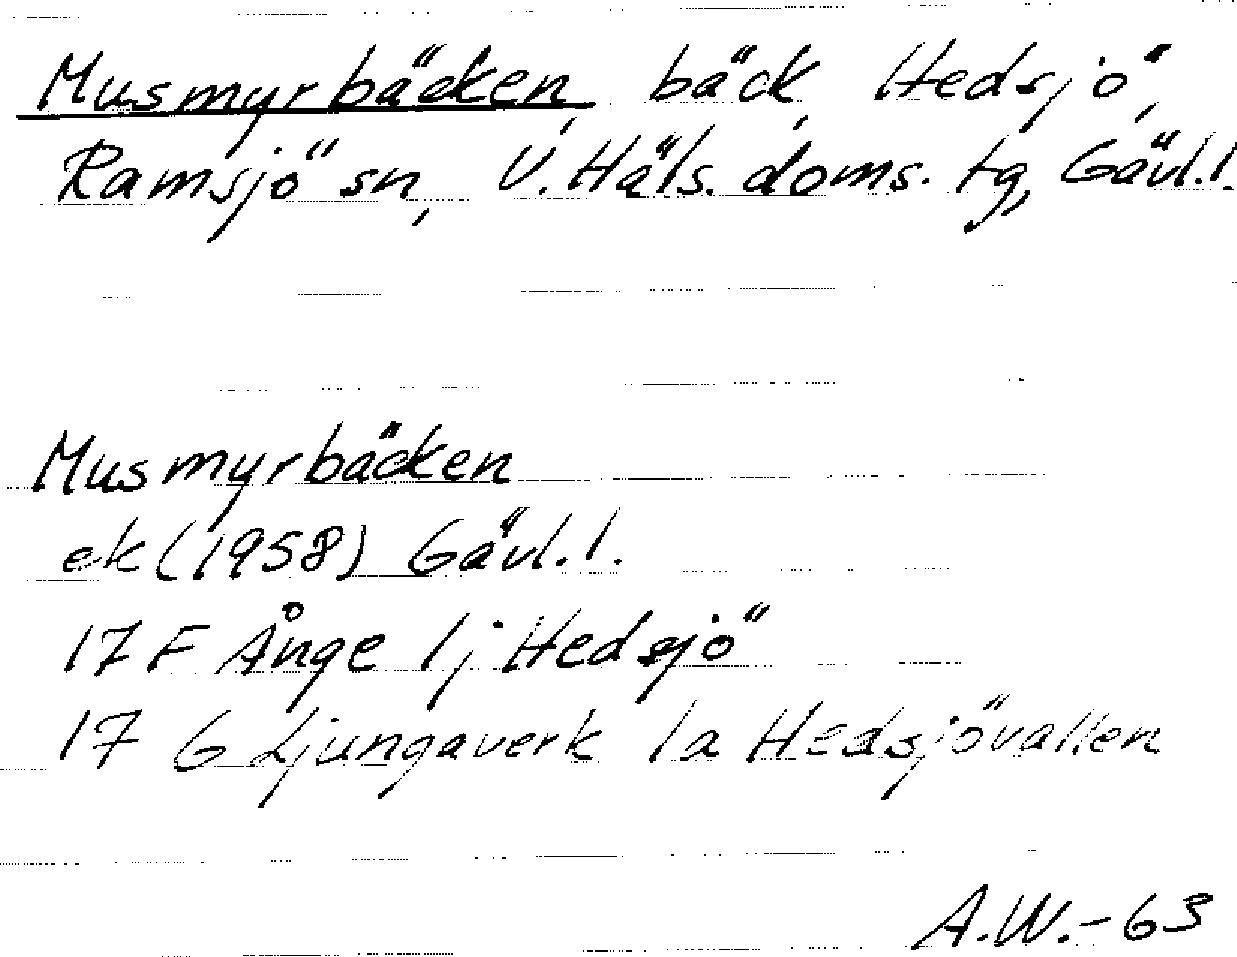 Musmyrbäcken, bäck, Hedsjö,
Ramsjö sn, V. Häls. doms. tg, Gävl.l.
Musmyrbäcken
ek (1958) Gävl.l.
17 F Ånge 1j Hedsjö
17 G Ljungaverk 1a Hedsjövallen
A.W.-63